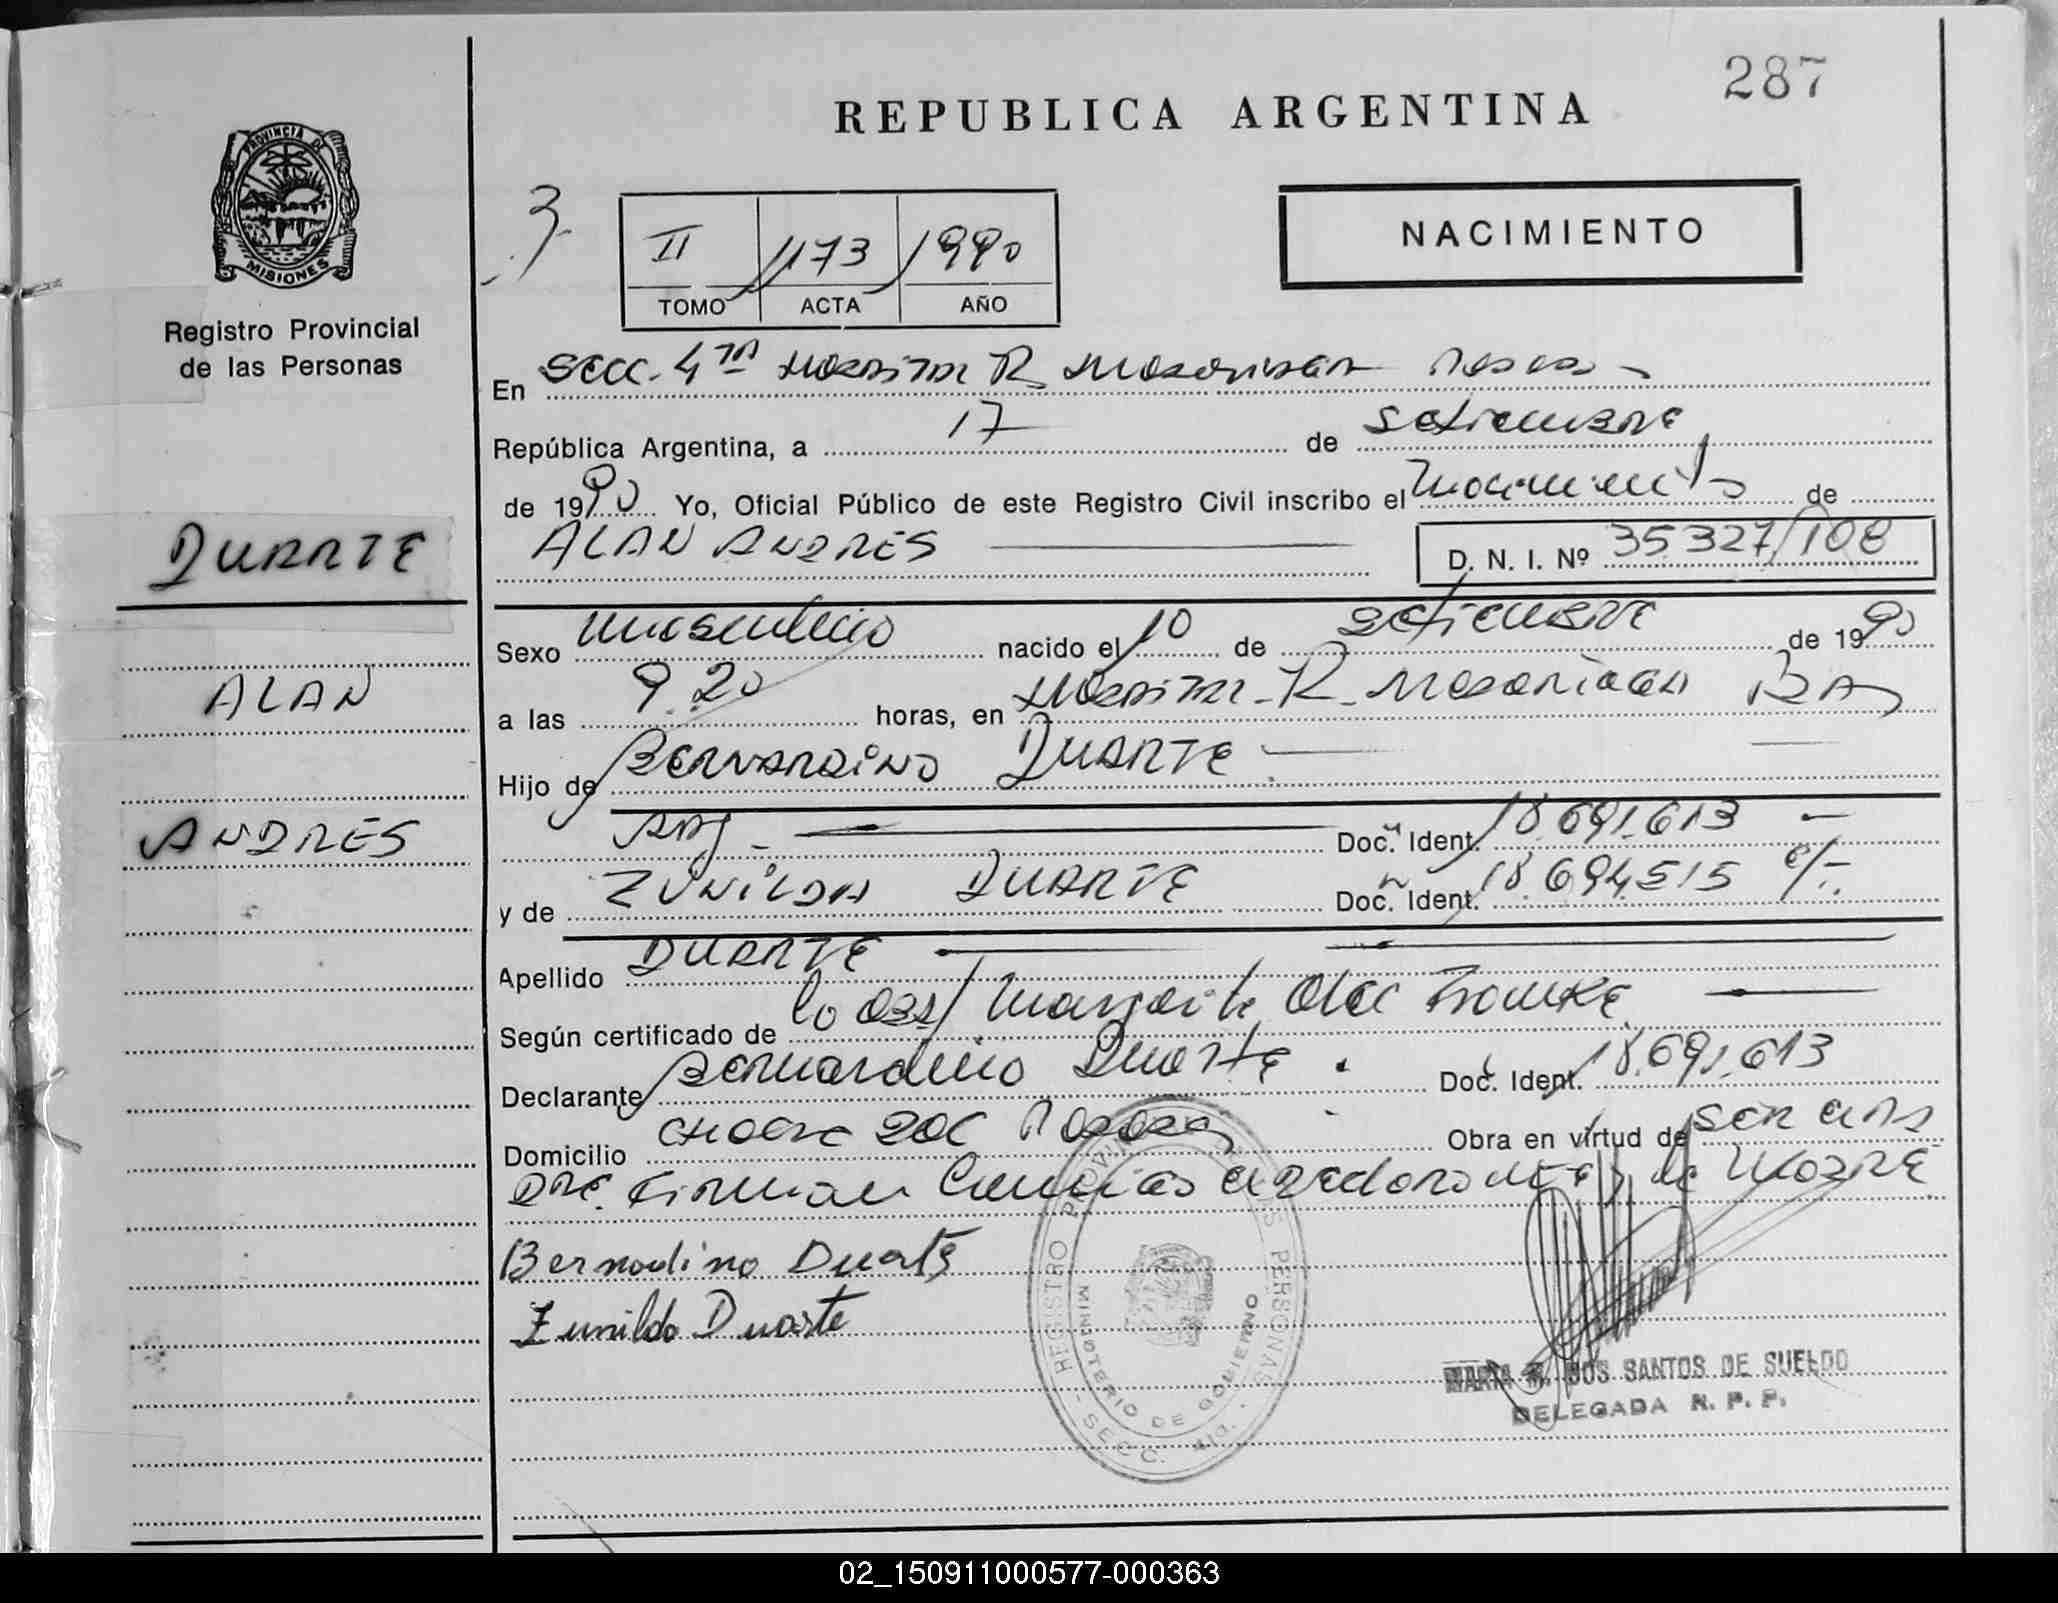 287
REPUBLICA ARGENTINA
PROVINCIA DE
MISIONES
Registro Provincial
de las Personas
NACIMIENTO
II 1173 1990
TOMO ACTA AÑO
En Secc. 4ta Hospital R. Madariaga Posadas
República Argentina, a 17 de Setiembre
de 1990 Yo, Oficial Público de este Registro Civil inscribo el Nacimiento de
ALAN ANDRES D. N. I. Nº 35.327.108
DUARTE
ALAN
ANDRES
Sexo masculino nacido el 10 de setiembre de 1990
a las 9.20 horas, en Hospital R. Madariaga
Hijo de BERNARDINO DUARTE
Arg Doc. Ident. 18.691.613
y de ZUNILDA DUARTE Doc. Ident. 18.694.515
Apellido DUARTE
Según certificado de la obst/ Margarita
Declarante Bernardino Duarte Doc. Ident. 18.691.613
Domicilio Posadas Obra en virtud de ser el
padre. Firman Madre
Bernardino Duarte
Zunilda Duarte
REGISTRO PROVINCIAL DE LAS PERSONAS
MINISTERIO DE GOBIERNO
SECC. 4ta.
MARIA DOS SANTOS DE SUELDO
DELEGADA R. P. P.
02_150911000577-000363